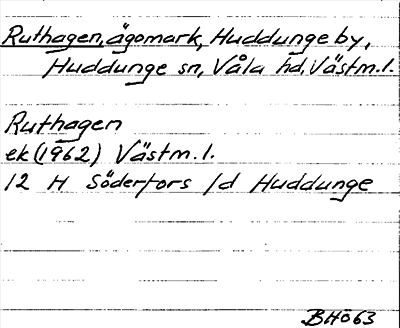 Ruthagen, ägomark, Huddunge by,
Huddunge sn, Våla hd, Västm.l.
Ruthagen
ek (1962) Västm.l.
12 H Söderfors 1d Huddunge
BHö 63